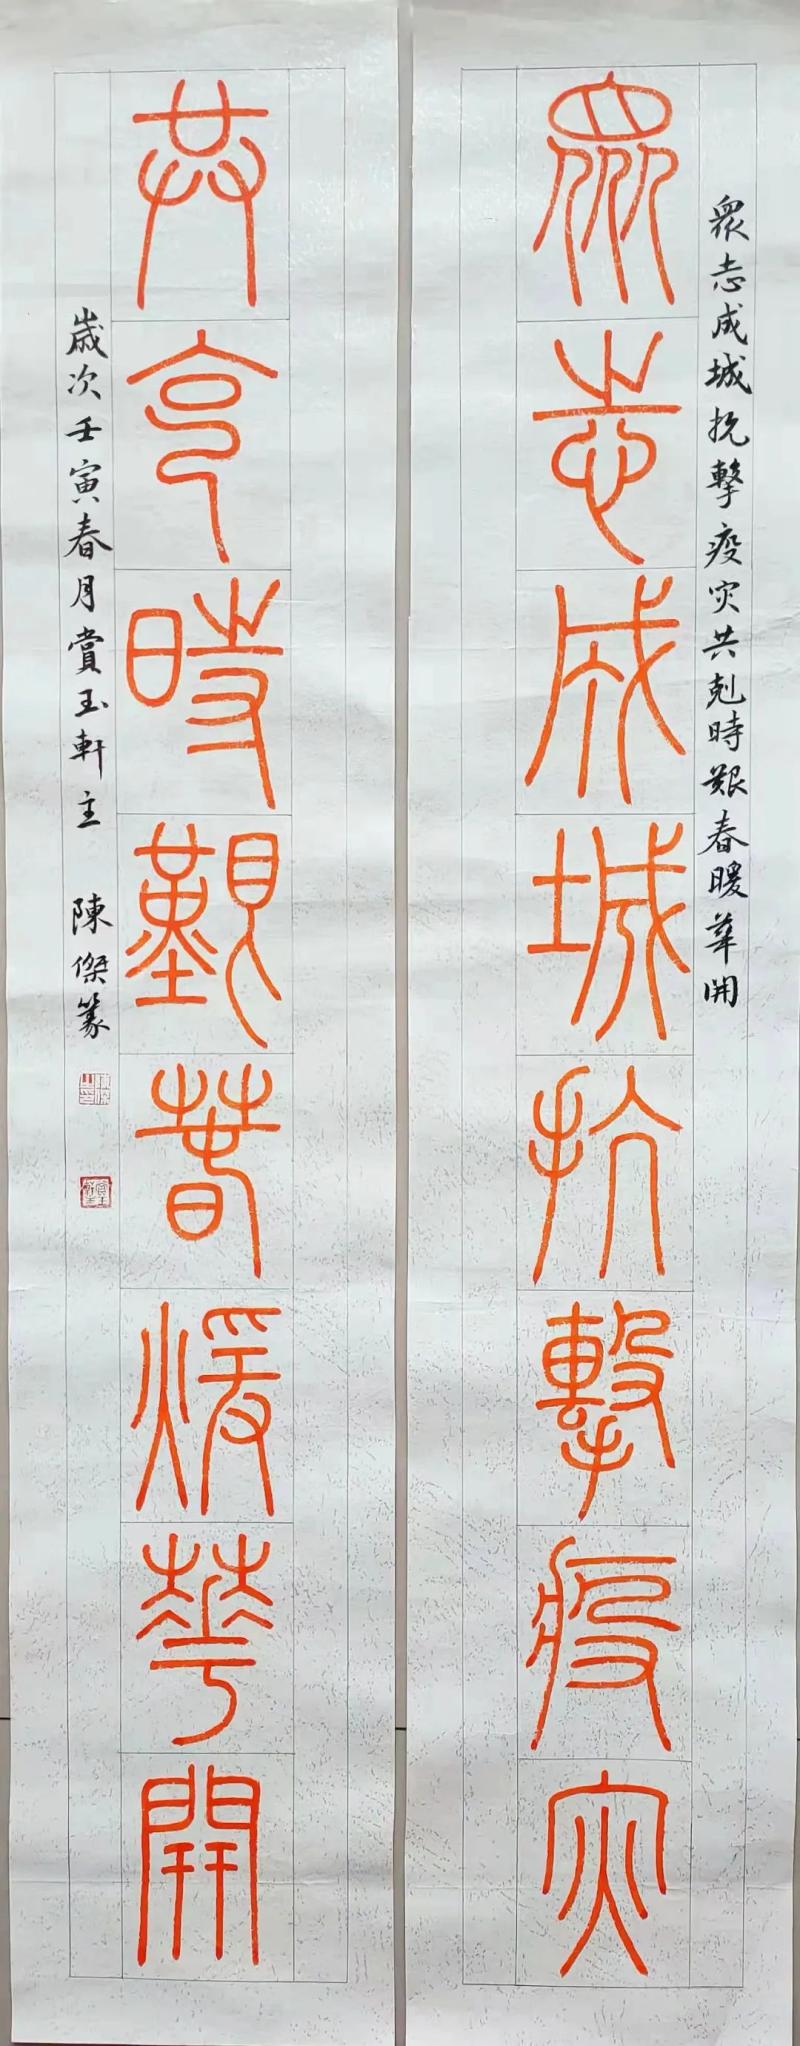 眾志成城抗擊疫灾共剋時艱春暖華開
眾志成城抗擊疫灾
共克時艱春煖華開
歲次壬寅春月賞玉軒主 陳傑篆